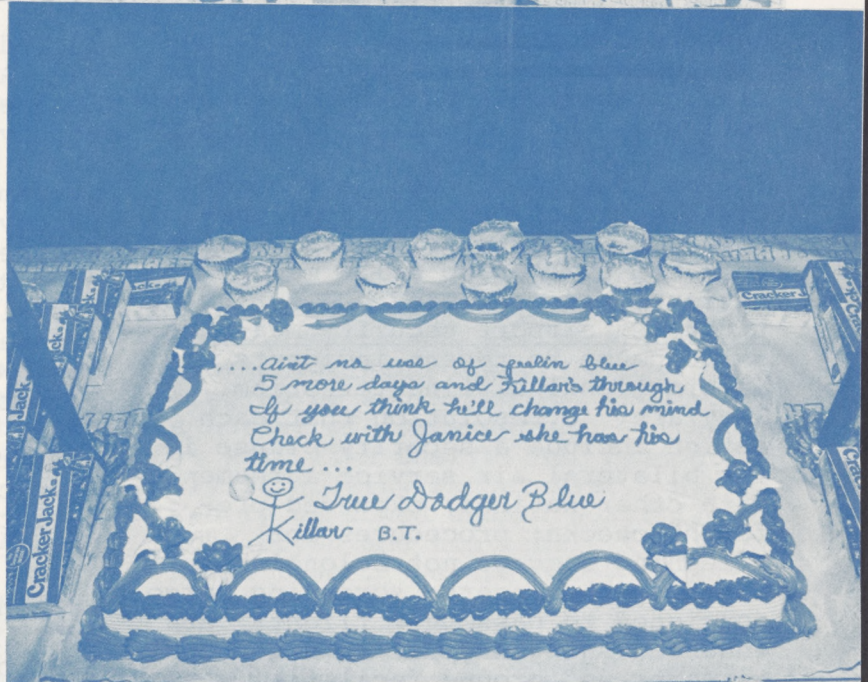 ....aint no use of feelin blue
5 more days and Killar's through
If you think he'll change his mind
Check with Janice she has his
time...
True Dodger Blue
Killar B.T.
Cracker Jack
Cracker Jack
Jack
Cracker
Cracker